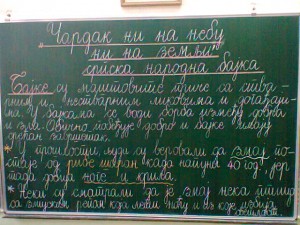 „Чардак ни на небу
ни на земљи"
српска народна бајка
Бајке су маштовите приче са ствар-
ним и нестварним ликовима и догађаји-
ма. У бајкама се води борба између добра
и зла. Обично побеђује добро и бајке имају
срећан завршетак.
* У прошлости људи су веровали да змај по-
стаје од рибе шаран када напуни 40 год. јер
тада добија ноге и крила.
* Неки су сматрали да је змај нека птица
са змијским репом која лети ноћу и из које избија
светлост.